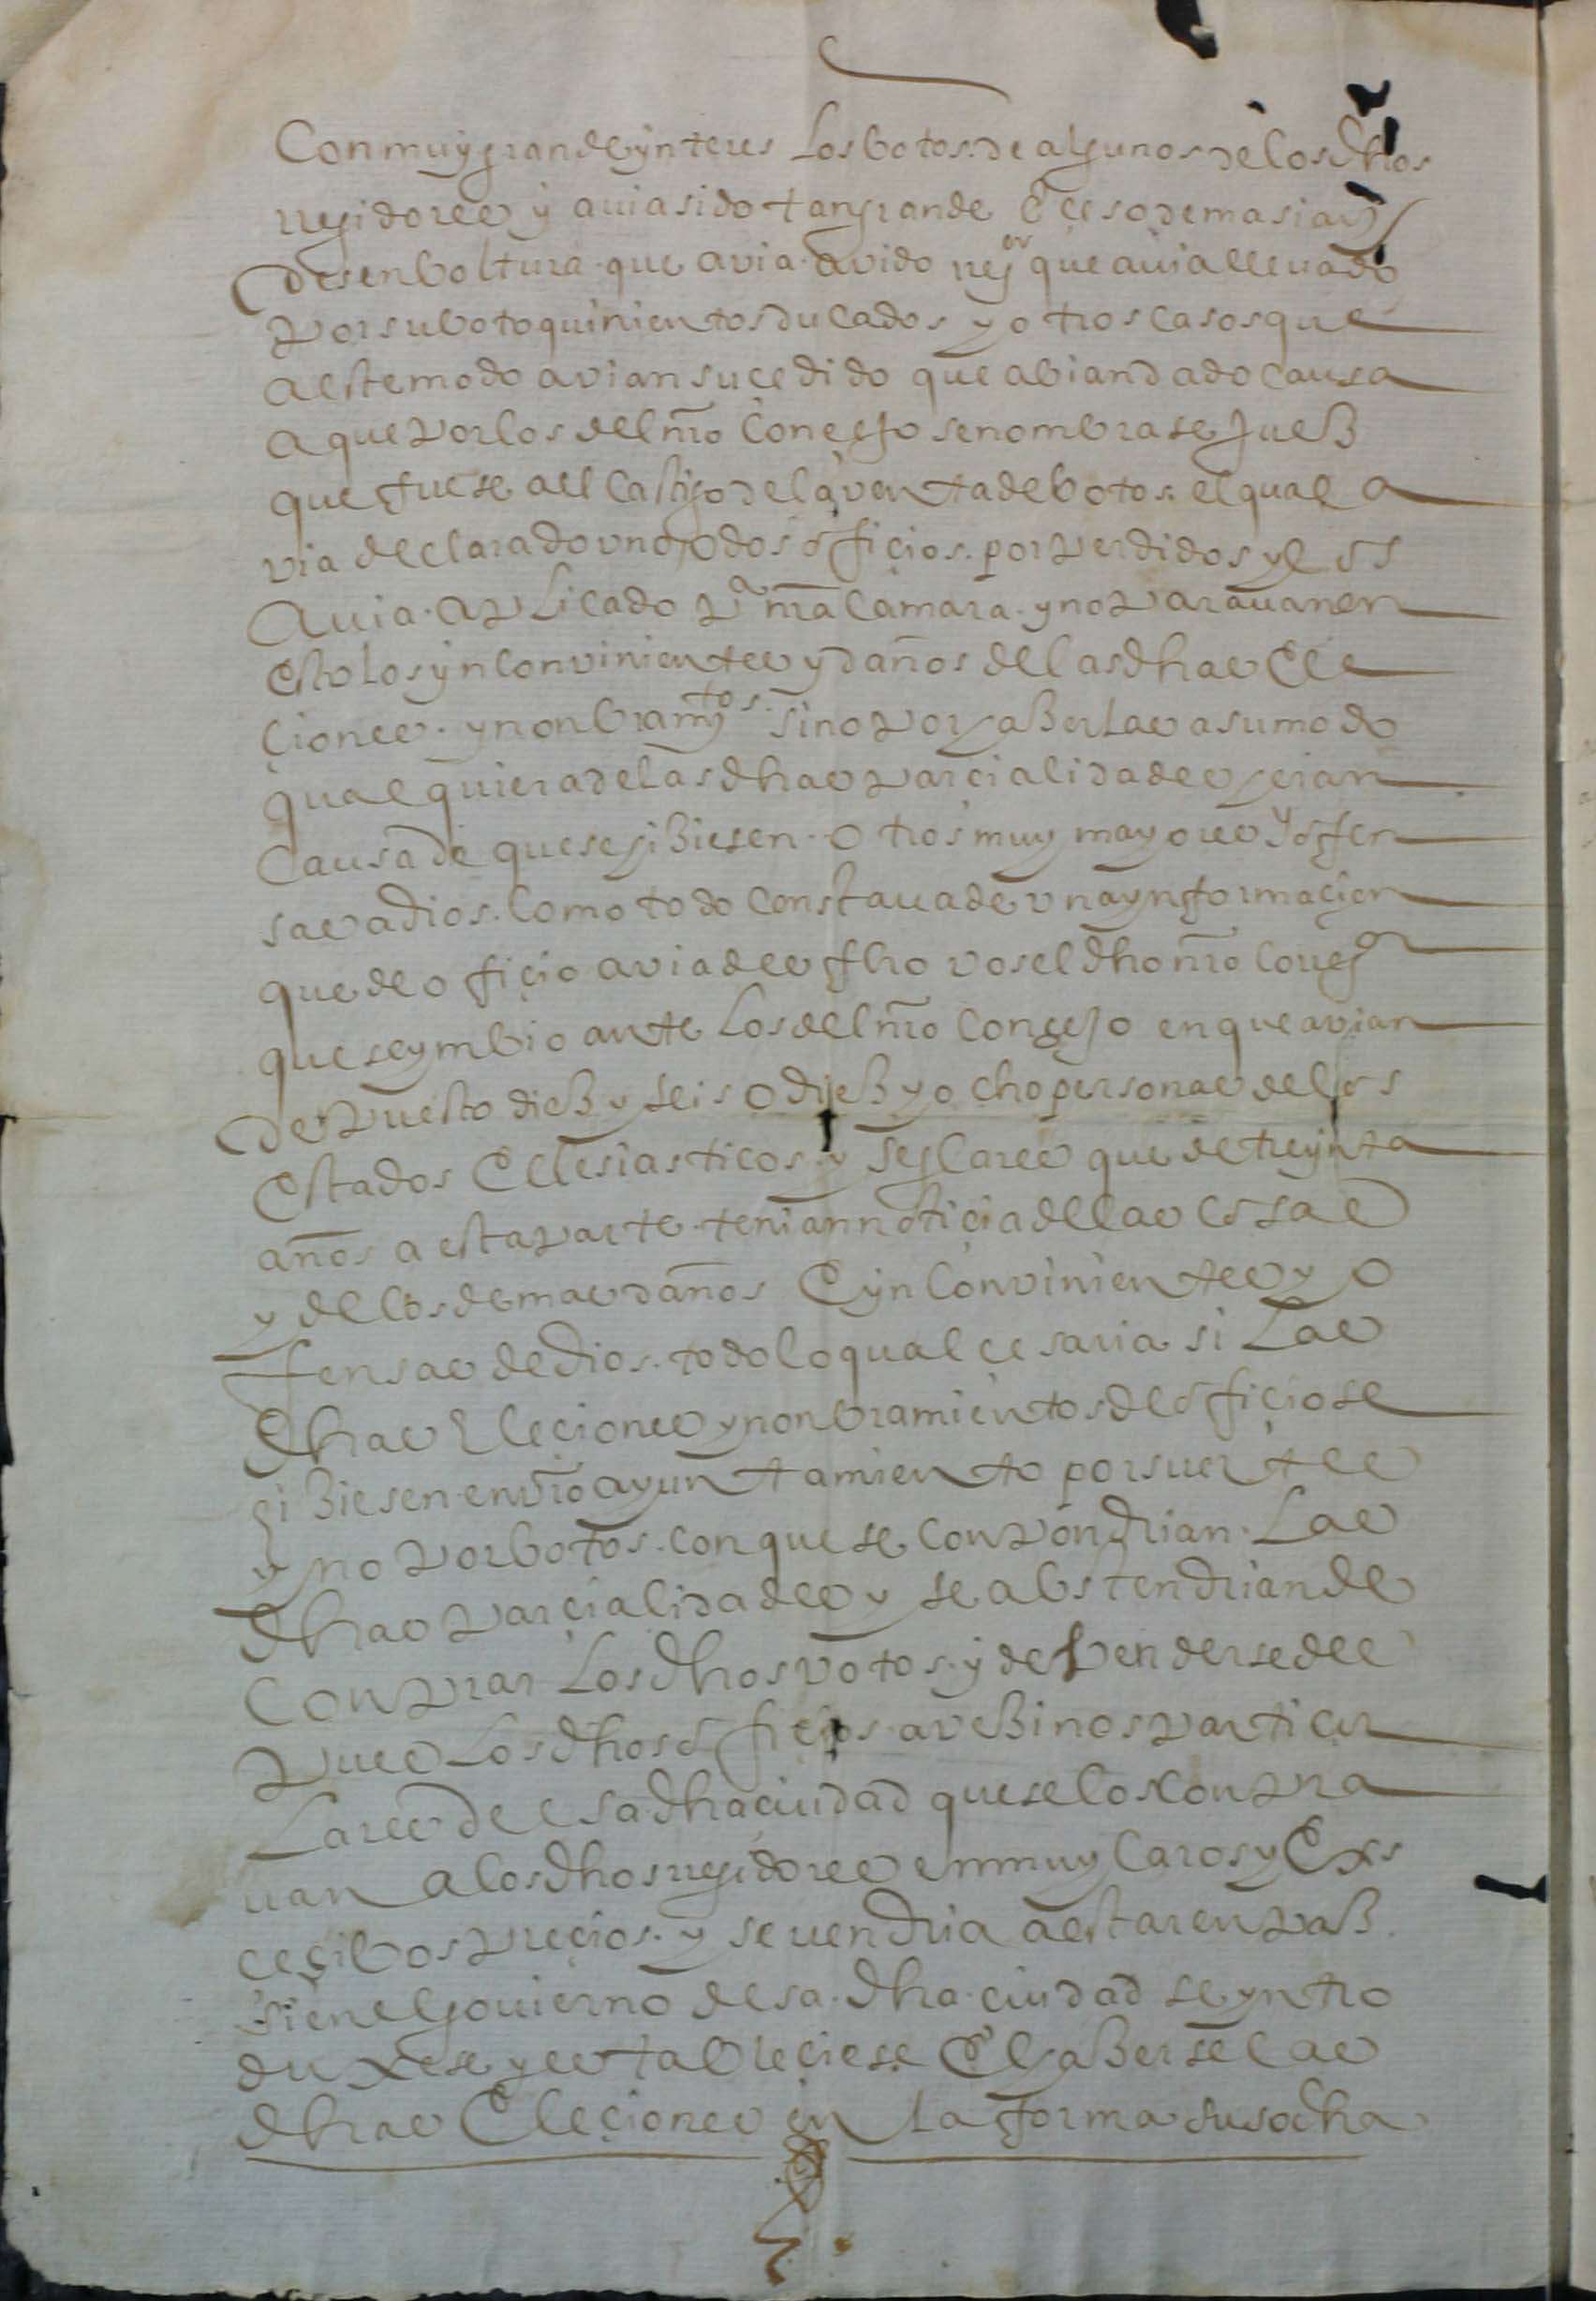 Con muy grande ynteres los botos de algunos de los dhos
rregidores y auia sido tan grande eçeso demasia y
desenboltura que avia avido regor que auia lleuado
por su boto quinientos ducados y otros casos que
a este modo avian suçedido que abian dado causa
a que por los del nro conçejo se nombrase jueß
que fuese al castigo de la venta de botos el qual a
via declarado uno o dos offiçios por perdidos y los
auia aplicado pa nra camara y no parauan en
esto los ynconvinientes y daños de las dhas ele
çiones y nonbramytos sino por haßerlas a su modo
qualquiera de las dhas parcialidades serian
causa de que se hißiesen otros muy mayores y offen
sas a dios como todo constaua de una ynformaçion
que de ofiçio aviades fho vos el dho nro corregor
que se ymbio ante los del nro conçejo en que avian
depuesto dieß y seis o dieß y ocho personas de los
estados eclesiasticos y seglares que de treynta
años a esta parte tenian notiçia de las cosas
y de los demas daños e ynconvinientes y o
fensas de dios todo lo qual çesaria si las
dhas eleçiones y nonbramientos de offiçio se
hißiesen en vro ayuntamiento por suertes
y no por botos con que se conpondrian las
dhas parçialidades y se abstendrian de
conprar los dhos votos y de venderse des
pues los dhos offiçios a veßinos particu
lares de esa dha ciudad que se los conpra
uan a los dhos rregidores en muy caros y exs
cecibos preçios y se vendria a estar en paß
si en el gouierno desa dha ciudad se yntro
duxese y estableçiese el haßerse las
dhas eleçiones en la forma susodha